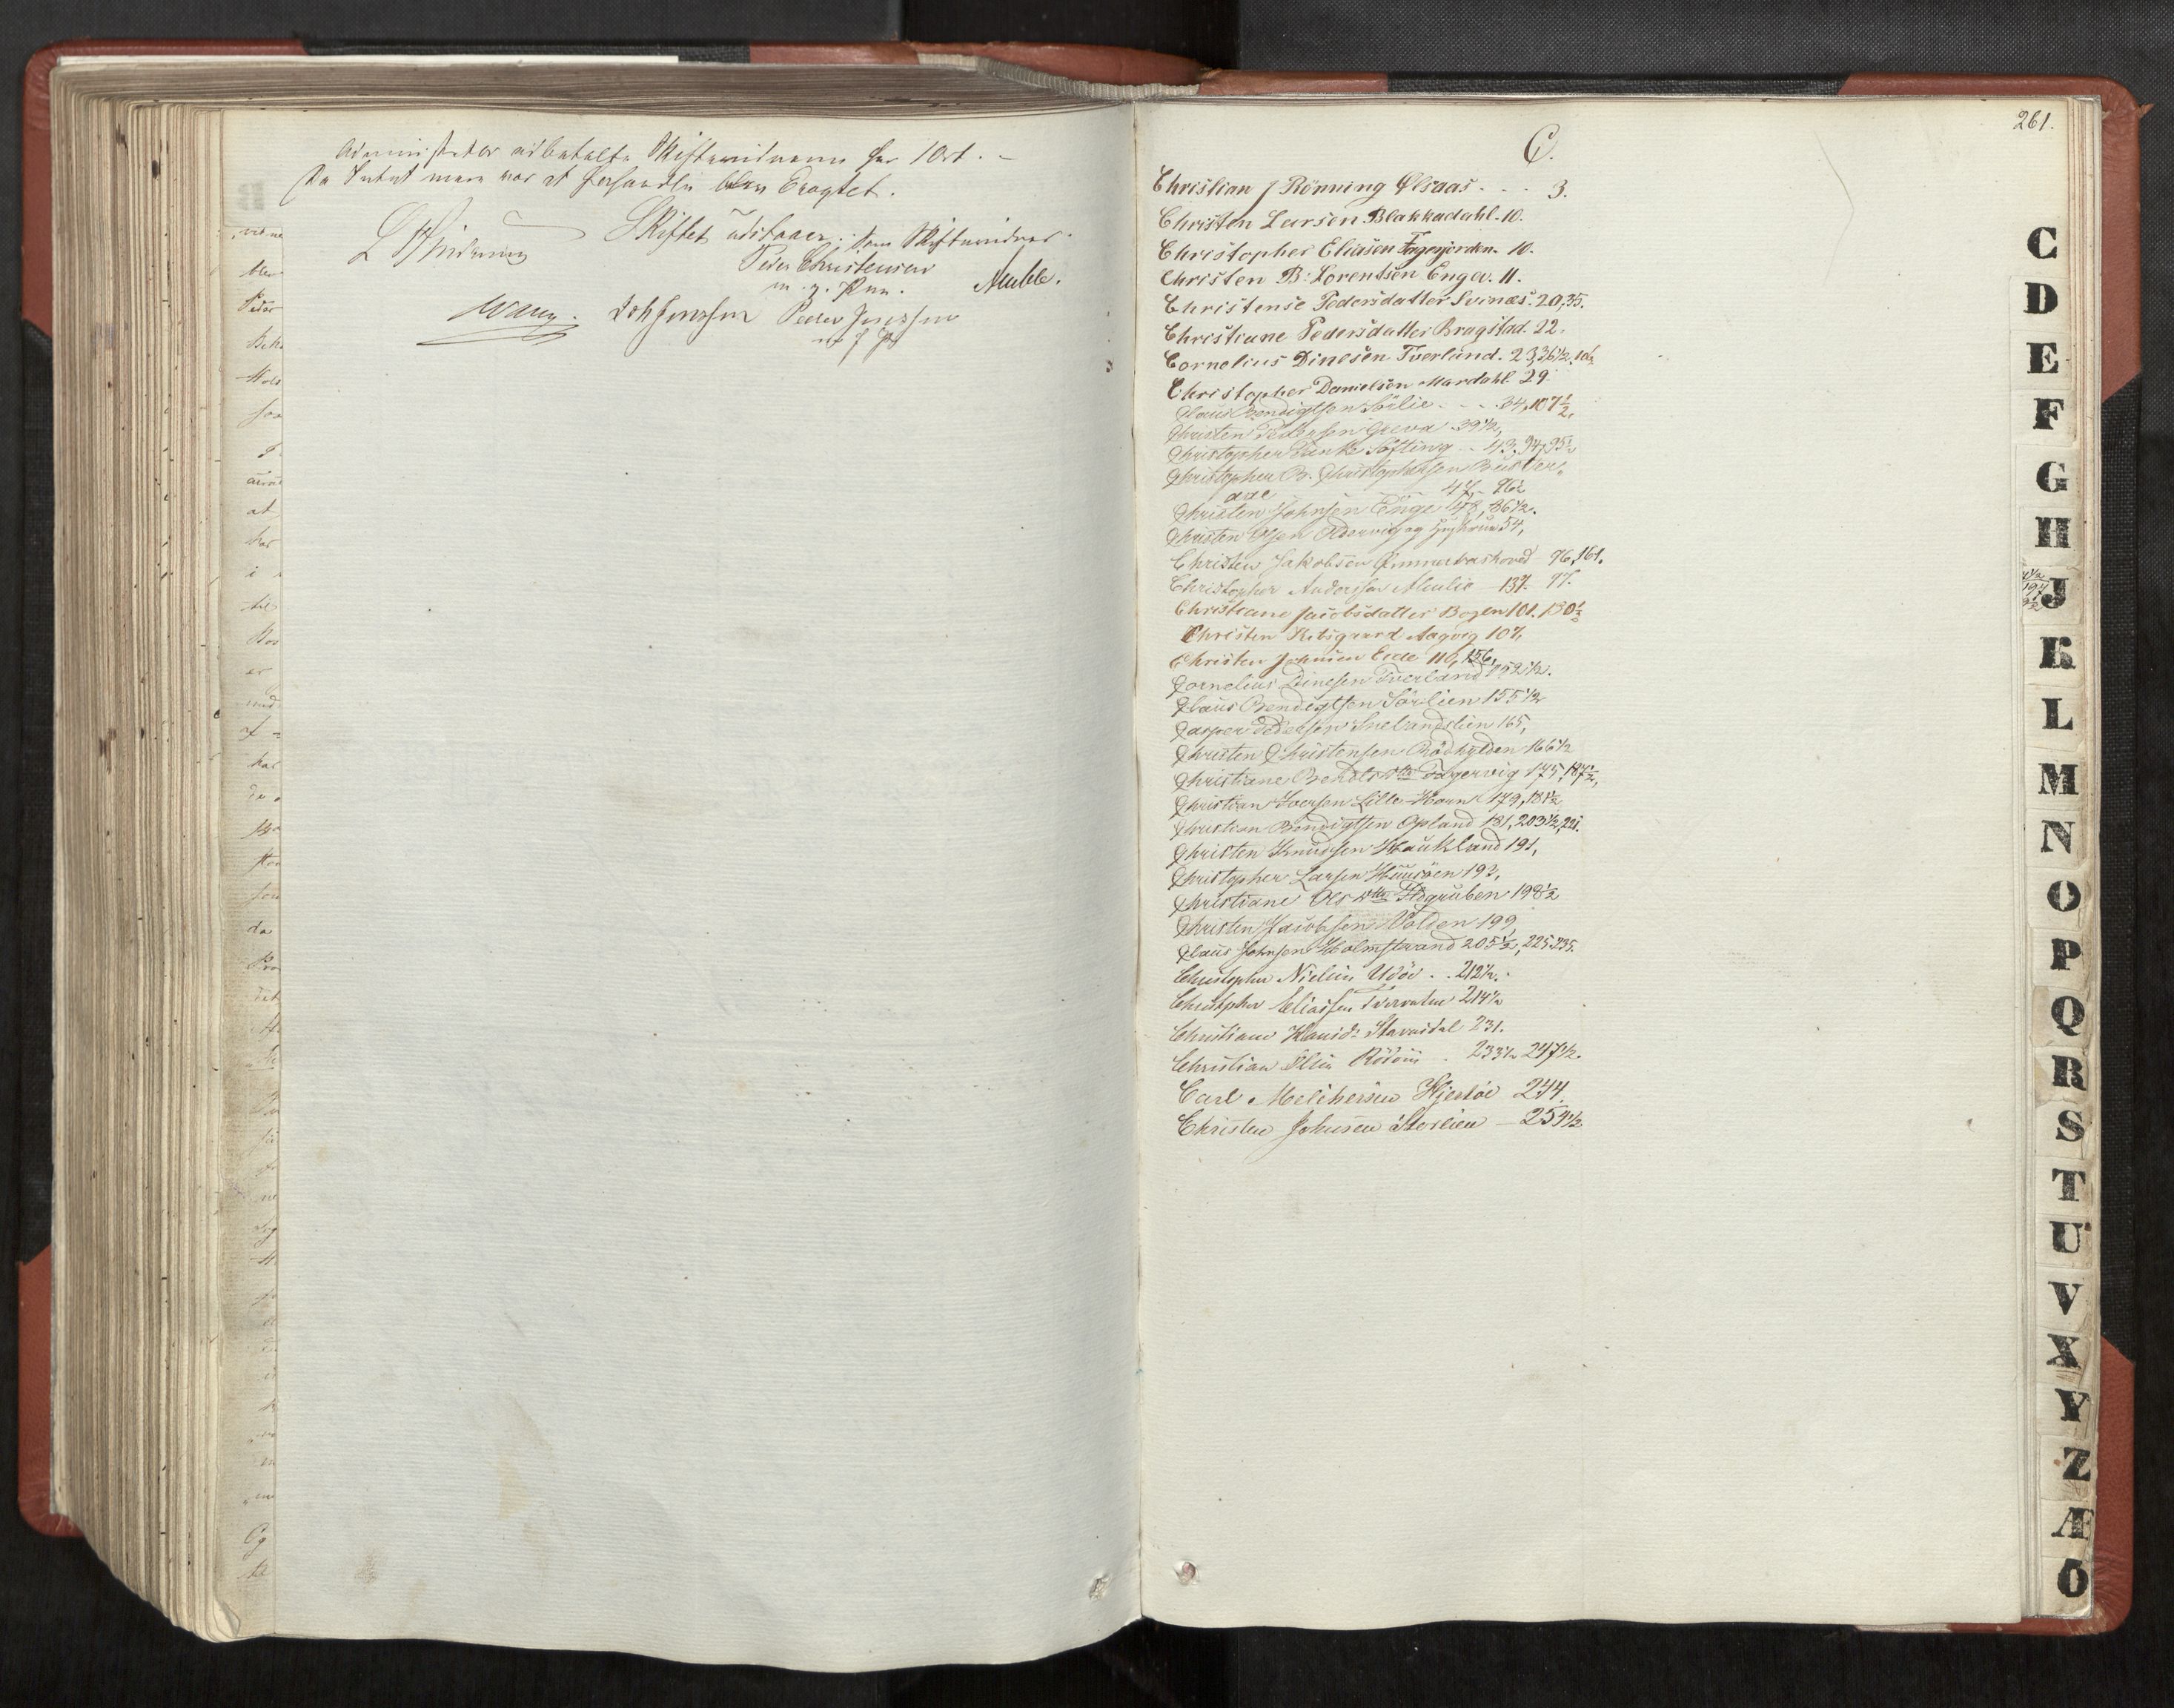 Administrator udbetalte Skiftevidnerne hver 1 Ort. –
Da Intet mere var at forhandle blev Eragtet.
Skiftet udstaaer. Som Skiftevidner.
Peder Christensen
m. p. Pen. Muhle.
Wang. Joh Jenssen Peder Jenssen
261.
C.
Christian J Rönning Ølsaas . . . 3.
Christen Larsen Blakkadahl. 10.
Christopher Eliasen Fagerjorden. 10.
Christen B: Lorentsen Enge. 11.
Christense Pedersdatter Svinæs. 20, 35.
Christiane Pedersdatter Brugstad. 22.
Cornelius Dinesen Tverland. 23, 36½,
Christopher Danielsen Mardahl 29.
Claus Bendigtsen Sörlie . . . 34, 107½,
Christen Pedersen 39½,
Christopher Banke Söfting . . 43, 94, 95½
Christopher B. Christophersen
aae 47. 96½
Christen Johnsen Enge 48, 86½.
Christen Olsen Oldervig og Hustrue 54,
Christen Jakobsen 96, 161.
Christopher Anderssen 137. 97.
Christiane Jacobsdatter Bogen 101. 150½
Christen Kilsgaard Aagvig 107,
Christen Johnsen Eide 110, 156,
Cornelius Dinesen Tverland 152½.
Claus Bendigtsen Sörlien 155½
Casper Pedersen Snelandslien 165,
Christen Christensen Rödhylden 166½
Christiane Bendts dtr Fagervig 175, 187½,
Christian Iversen Lille Horn 179, 181½
Christian Bendigtsen Opland 181, 203½, 221.
Christen Knudsen Haukland 191,
Christopher Larsen Huusöen 193,
Christiane Ols dtr Ildgruben 198½
Christen Jacobsen Volden 199,
Claus Johnsen Holmstrand 205½, 225. 235.
Christopher Nielsen Udöe . . 212½.
Christopher Eliassen Tvervatne 214½
Christiane Hansd: Stavasdal 231.
Christian Olsen Rödöen . 233½ 247½.
Carl Melchersen Hjertöe 244.
Christen Johnsen Storlien – 254½
C
D
E
F
G
H
J
K
L
M
N
O
P
Q
R
S
T
U
V
X
Y
Z
Æ
Ö